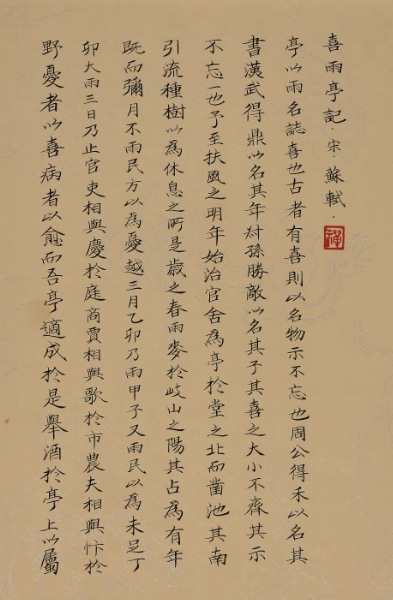 喜雨亭記．宋．蘇軾．
亭以雨名誌喜也古者有喜則以名物示不忘也周公得禾以名其
書漢武得鼎以名其年叔孫勝敵以名其子其喜之大小不齊其示
不忘一也予至扶風之明年始治官舍為亭於堂之北而鑿池其南
引流種樹以為休息之所是歲之春雨麥於岐山之陽其占為有年
既而彌月不雨民方以為憂越三月乙卯乃雨甲子又雨民以為未足丁
卯大雨三日乃止官吏相與慶於庭商賈相與歌於市農夫相與忭於
野憂者以喜病者以愈而吾亭適成於是舉酒於亭上以屬